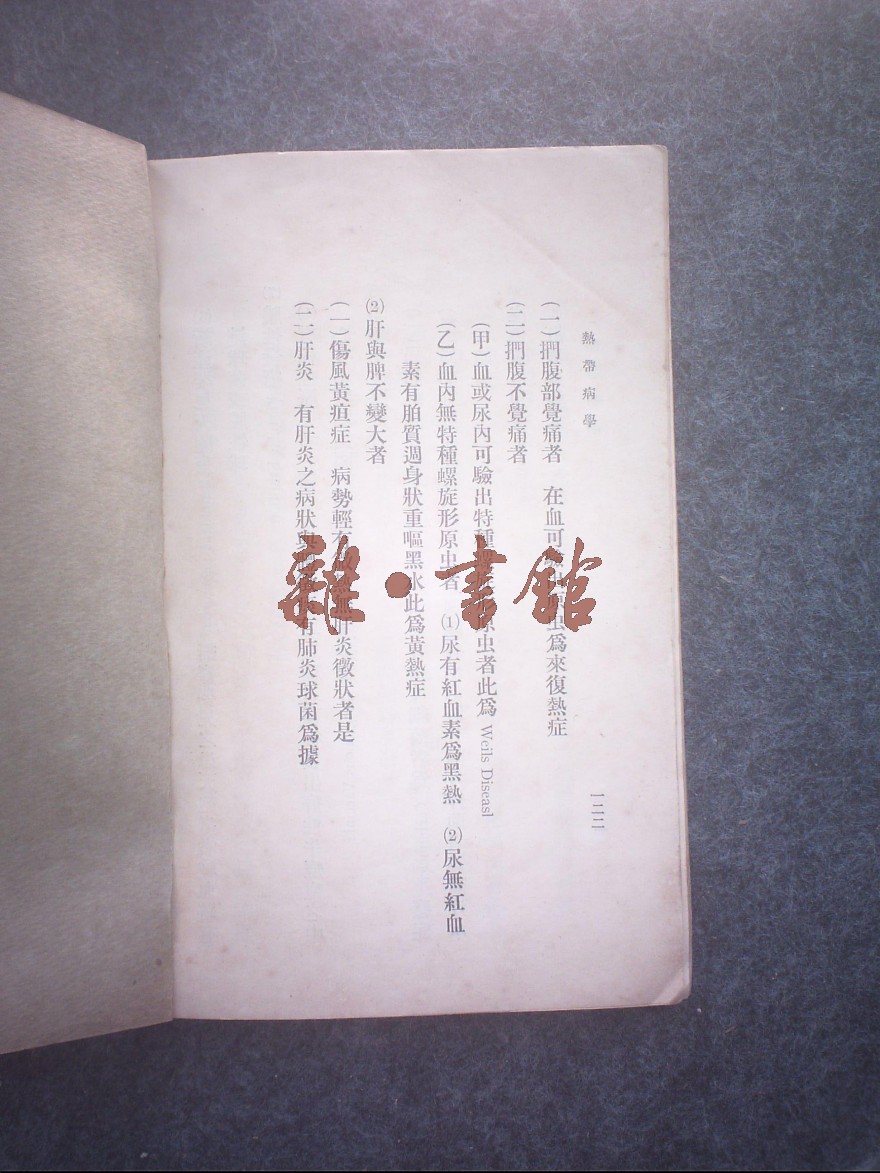 熱帶病學
一二二
(一)捫腹部覺痛者 在血可 虫爲來復熱症
(二)捫腹不覺痛者
(甲)血或尿內可驗出特種 原虫者此爲 Weils Diseasl
(乙)血內無特種螺旋形原虫者 (1)尿有紅血素爲黑熱 (2)尿無紅血
素有胎質週身狀重嘔黑水此爲黃熱症
(2)肝與脾不變大者
(一)傷風黃疸症 病勢輕有 肝炎徵狀者是
(二)肝炎 有肝炎之病狀與 有肺炎球菌爲據
雜·書館